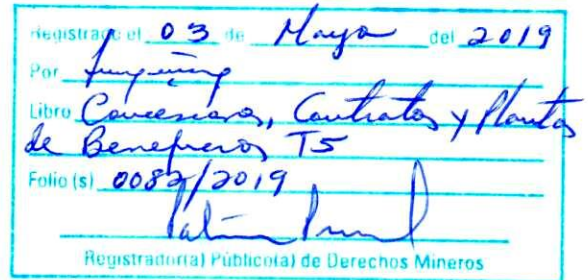 Registrado el 03 de Mayo del 2019
Por
Libro Concesiones, Contratos y Plantas
de Beneficios T5
Folio (s) 0082/2019
Registrador(a) Público(a) de Derechos Mineros